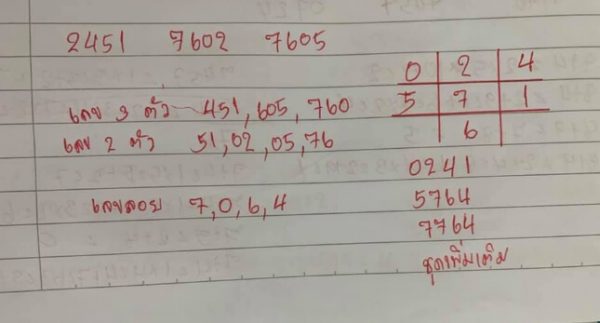 2451 7602 7605
เลข 3 ตัว 451, 605, 760
เลข 2 ตัว 51, 02, 05, 76
เลขลอย 7, 0, 6, 4
0 2 4
5 7 1
6
0241
5764
7764
ชุดเพิ่มเติม